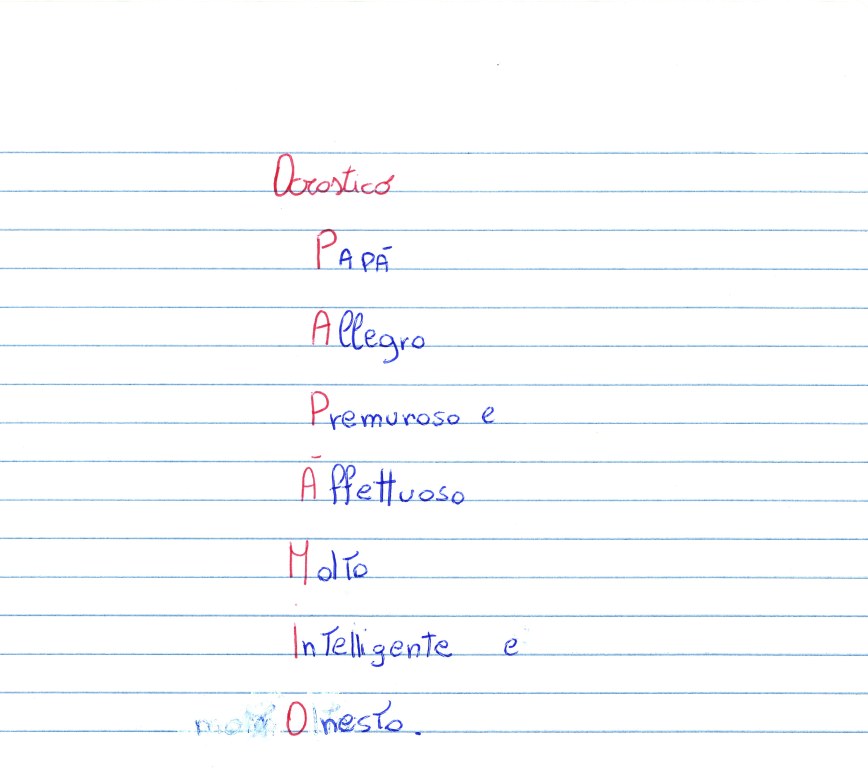 Acrostico
PAPÀ
Allegro
Premuroso e
Àffettuoso
Molto
Intelligente e
Onesto.